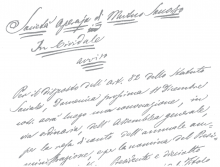 Società operaja di Mutuo Soccorso
In Cividale
avviso
Per il disposto dell'art. 32 dello Statuto
Sociale, Domenica prossima 17 Dicembre
avrà luogo una convocazione, in
via ordinaria, dell'Assemblea generale,
per la resa di conto dell'annuale am-
ministrazione, e per la nomina del Presi-